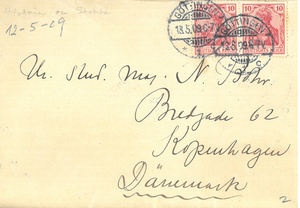 12-5-09
10 10
GÖTTINGEN
13.5.09.6-7
GÖTTINGEN
Hr. stud. mag. N. Bohr.
Bredgade 62
Kopenhagen
Dänemark
2